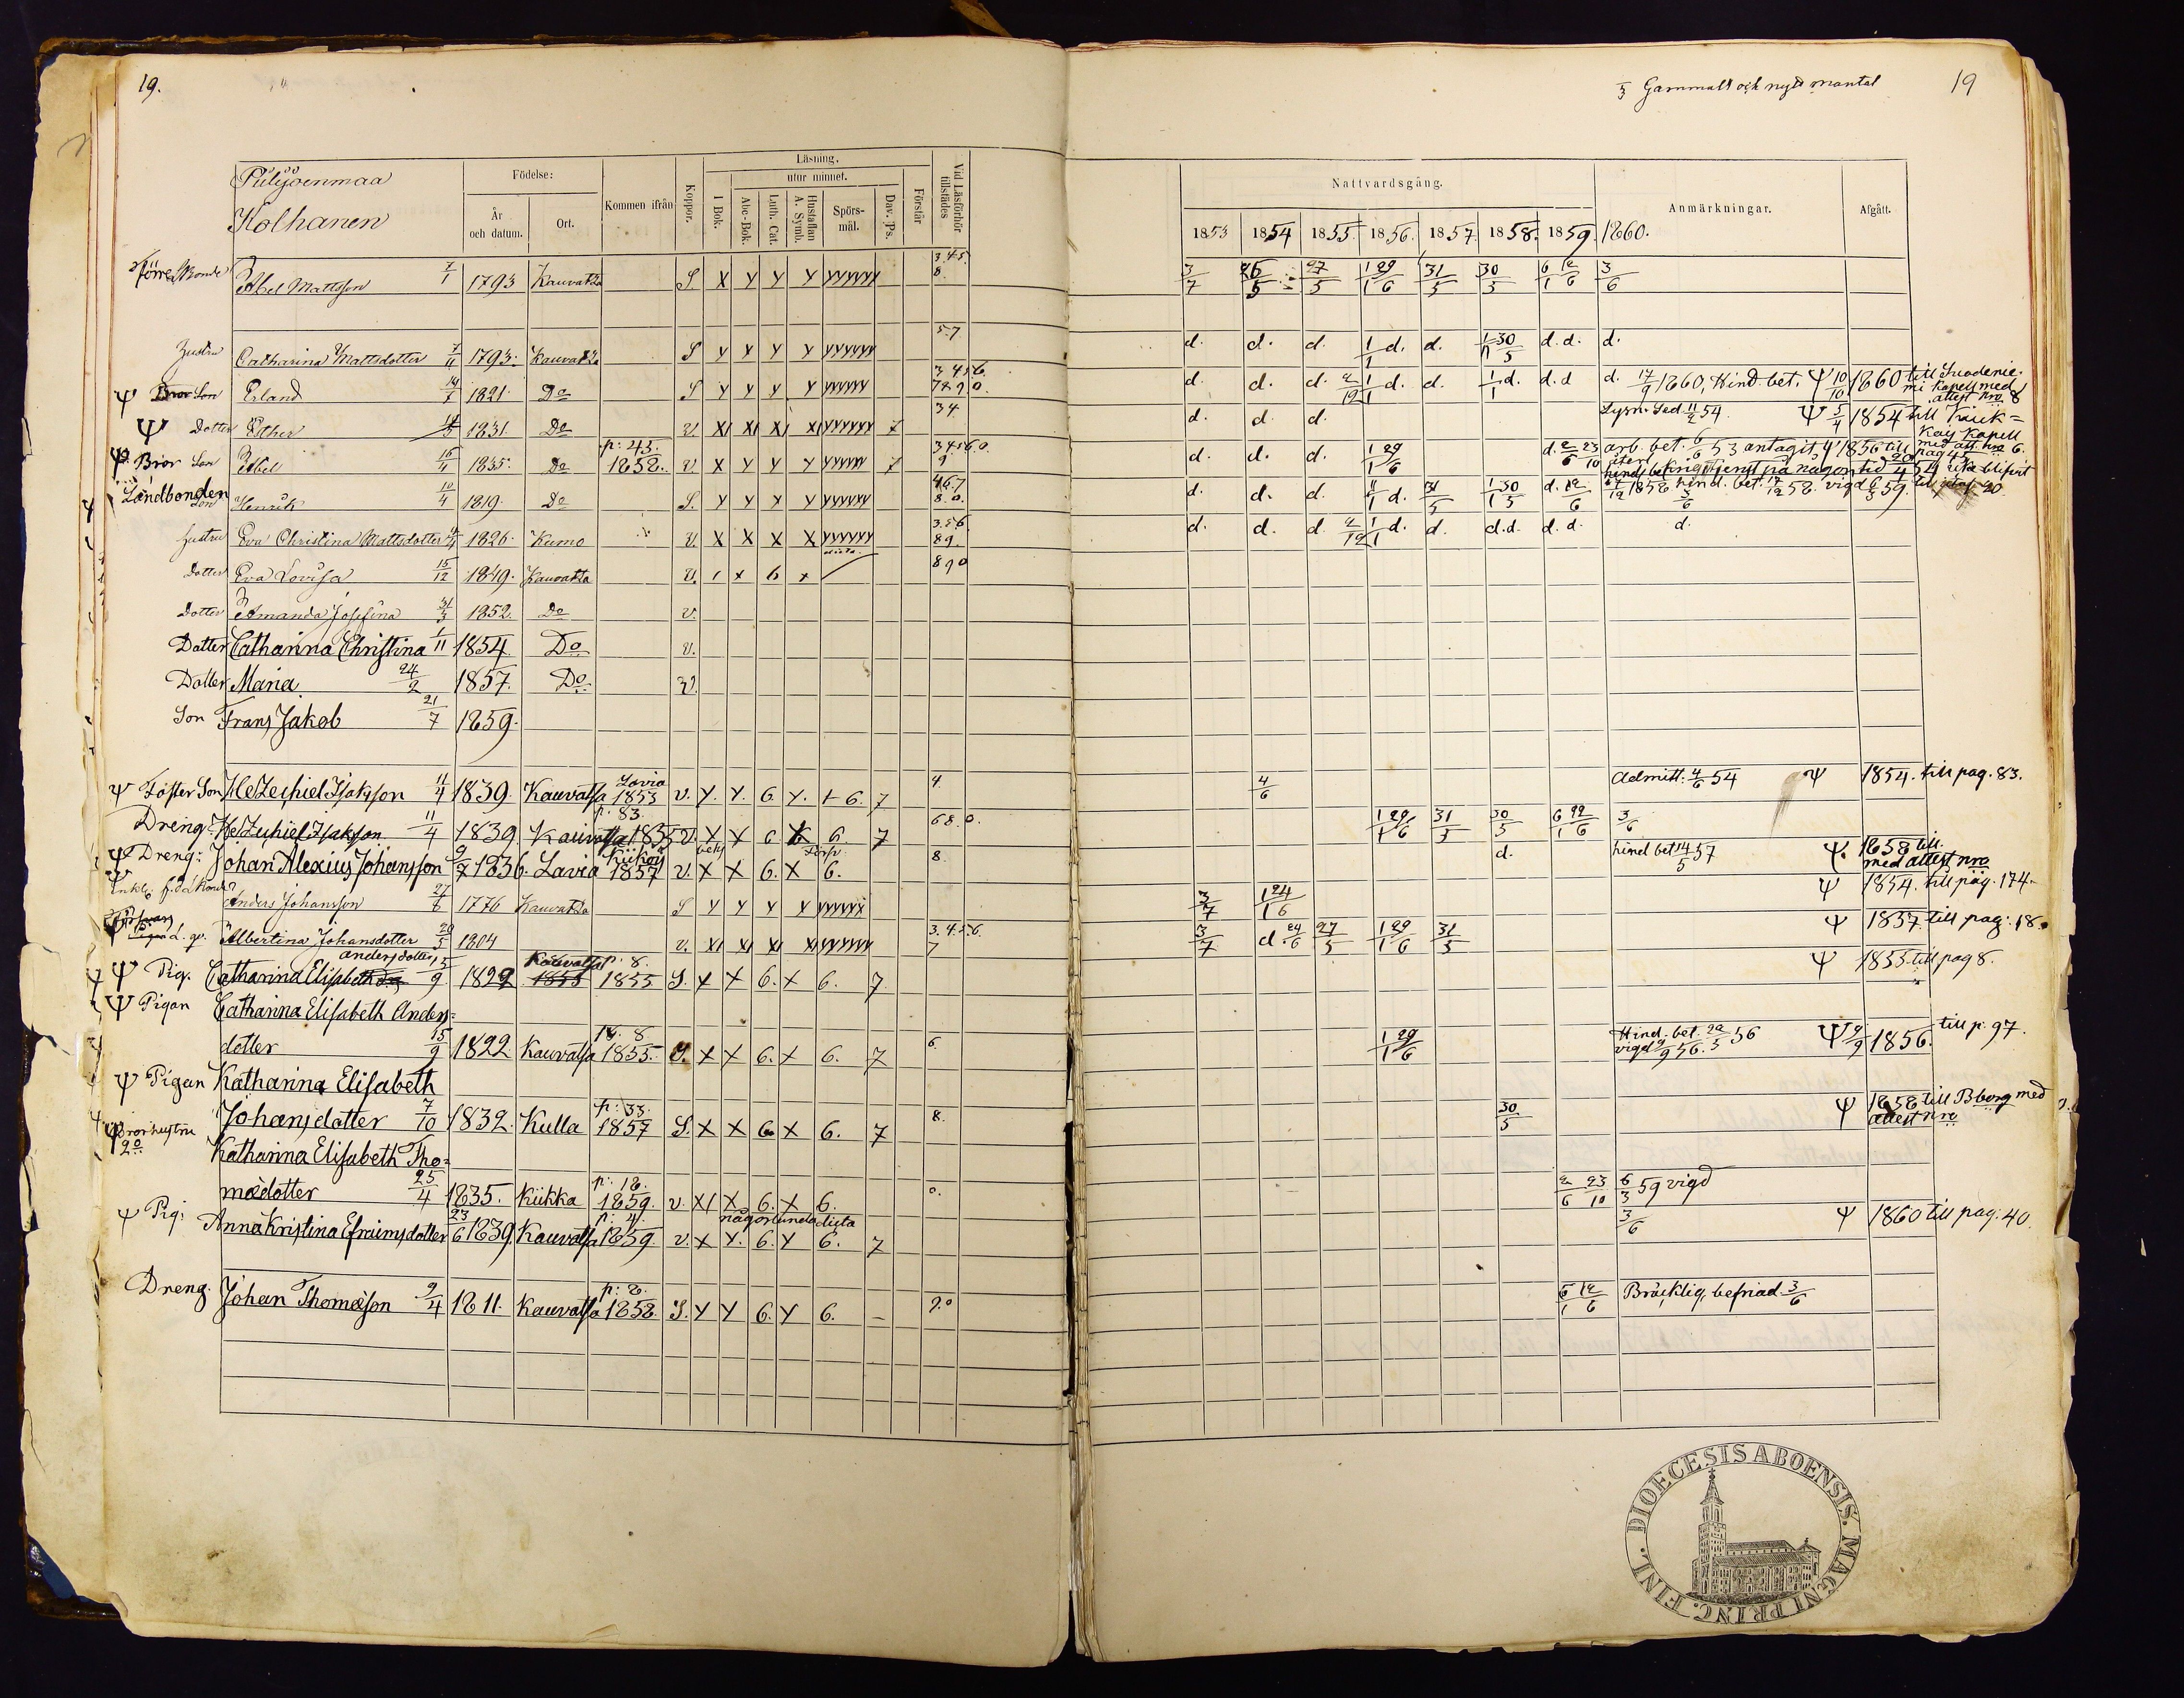 19.
3/5 Gammalt och nytt mantal 19
Piilijoenmaa
Kolhanen
Födelse:
År och datum.
Ort.
Kommen ifrån
Koppor.
Läsning.
I Bok.
utur minnet.
Abc-Bok.
Luth. Cat.
Hustaflan A. Symb.
Spörsmål.
Dav. Ps.
Förstår
Vid Läsförhör tillstädes
Nattvardsgång.
1853 1854 1855. 1856. 1857. 1858. 1859. 1860.
Anmärkningar.
Afgått.
Förre Bonde Abel Mattsson 7/1 1793 Kauvatsa S. X Y Y Y yyyyyy 3.4.5. 8. 3/7 26/5 27/5 1/1 29/6 31/5 30/5 6/1 12/6 3/6
Hustru Catharina Mattsdotter 7/11 1793. Kauvatsa S Y Y Y Y yyyyyy 5.7 d. d. d. 1/1 d. d. 1/1 30/5 d. d. d.
Ψ Bror Son Erland 14/7 1821. Do S Y Y Y Y yyyyyy 3 4 5 6. 7 8 9 0. d. d. d. 2/12 1/1 d. d. 1/1 d. d. d d. 17/9 1860, Hind. bet. Ψ 10/10 1860 till Suodenie-
mi Kapell med attest nro 8
Ψ Dotter Esther 14/5 1831. Do V. X X X X yyyyyy 7 3 4. d. d. d. Lysn. Sed. 11/2 54. Ψ 5/4 1854 till Kiik=
kais Kapell med att. nro 6.
Ψ Bror Son Abel 16/4 1835. Do p: 43. 1858. V. X Y Y Y yyyyyy 7 3 4 5 6. 0. 9 d. d. d. 1/1 29/6 d. 2/6 23/10 arb. bet. 6/6 53 antagit, Ψ 1856 till pag 45
Landbonden Son Henrik 10/4 1819. Do S. Y Y Y Y yyyyyy 4.6.7 8. 0. d. d. d. 1/1 d. 31/5 1/1 30/5 d. 12/6
Hustru Eva Christina Mattsdotter 1826. Kumo V. X X X X yyyyyy 3.5.6. 8 9. d. d. d. 2/12 1/1 d. d. d. d. d. d. d.
Dotter Eva Lovisa 15/12 1849. Kauvatsa V. 1 x 6 x 8 9 0
Dotter Amanda Josefina 31/3 1852. Do V.
Dotter Catharina Christina 1/11 1854. Do V.
Dotter Maria 24/2 1857. Do V.
Son Frans Jakob 21/7 1859.
Ψ Foster Son Hezechiel Isaksson 11/4 1839. Kauvatsa Lavia 1853 V. Y. Y. 6. Y. + 6. 7 4. 4/6 Admitt. 4/6 54 Ψ 1854. till pag. 83.
Dreng. Hezechiel Isaksson 11/4 1839 Kauvatsa p. 83. 1855 V. X X 6 X 6. 7 6 8. 0. 1/1 29/6 31/5 30/5 6/1 12/6 3/6
Ψ Dreng: Johan Alexius Johansson 9/7 1836. Lavia Kiikois 1857 V. X X 6. X 6. 8. d. hind bet 14/5 57 Ψ. 1858 till
med attest nro
Ψ Anders Johansson 27/8 1776 Kauvatsa S Y Y Y Y yyyyyy 3/7 1/1 24/6 Ψ 1854. till pag. 174.
Albertina Johansdotter 20/5 1804 V. X X X X yyyyyy 3. 4. 5. 6. 7 3/7 d. 24/6 27/5 1/1 29/6 31/5 Ψ 1857 till pag: 18.
Ψ Pig. Catharina Elisabeth Andersdotter 15/9 1822 Kauvatsa p: 8. 1855. S. X X 6. X 6. 7. Ψ 1855. till pag 8.
Ψ Pigan Catharina Elisabeth Anders=
dotter 15/9 1822 Kauvatsa p. 8 1855. S. X X 6. X 6. 7 6. 1/1 29/6 Hind. bet. 56
vigd 9/9 56. Ψ 9/9 1856. till p. 97.
Ψ Pigan Katharina Elisabeth
Johansdotter 7/10 1832. Kulla p: 33. 1857 S. X X 6 X 6. 7 8. 30/5 Ψ 1858 till Bborg med
attest nro
Ψ Brorhustru 2o Katharina Elisabeth Tho=
mædotter 25/4 1835. Kiikka p: 18. 1859. V. X X 6. X 6. 0. 2/6 23/10 6/3 59 vigd
någorlunda dista
Ψ Pig: Anna Kristina Efraimsdotter 23/6 1839. Kauvatsa p: 4. 1859. V. X Y. 6. Y 6. 7 3/6 Ψ 1860 till pag: 40.
Dreng. Johan Thomæson 9/4 1811. Kauvatsa p: 2. 1858 S. Y Y 6. Y 6. – 9. 0 6/1 12/6 Bräcklig, befriad. 3/6
DIOECESIS ABOENSIS. MAGNI PRINC. FINL.